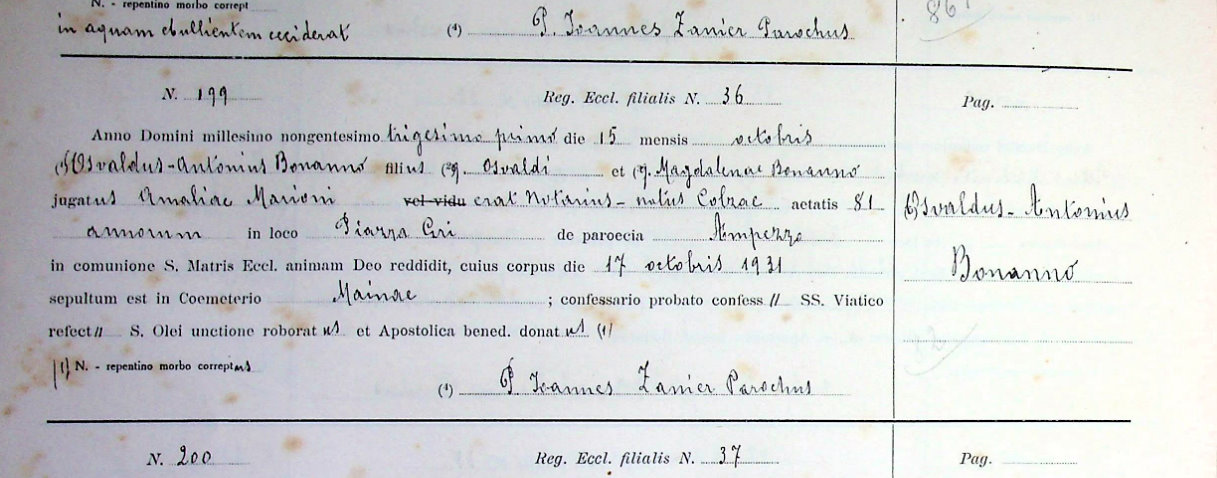 N. - repentino morbo corrept
in aquam ebullientem ceciderat (4) P. Ioannes Zanier Parochus 86
N. 199 Reg. Eccl. filialis N. 36 Pag.
Anno Domini millesimo nongentesimo trigesimo primo die 15 mensis octobris
Osvaldus-Antonius Bonanno filius q. Osvaldi et q. Magdalenae Bonanno
jugatus Amaliae Marioni vel vidu erat Notarius - natus Colzae aetatis 81 Osvaldus-Antonius
annorum in loco Piazza de paroecia Ampezzo
in comunione S. Matris Eccl. animam Deo reddidit, cuius corpus die 17 octobris 1931 Bonanno
sepultum est in Coemeterio Mainae ; confessario probato confess // SS. Viatico
refect // S. Olei unctione roborat us et Apostolica bened. donat us (1)
(1) N. - repentino morbo correptus
(4) P. Ioannes Zanier Parochus
N. 200 Reg. Eccl. filialis N. 37 Pag.